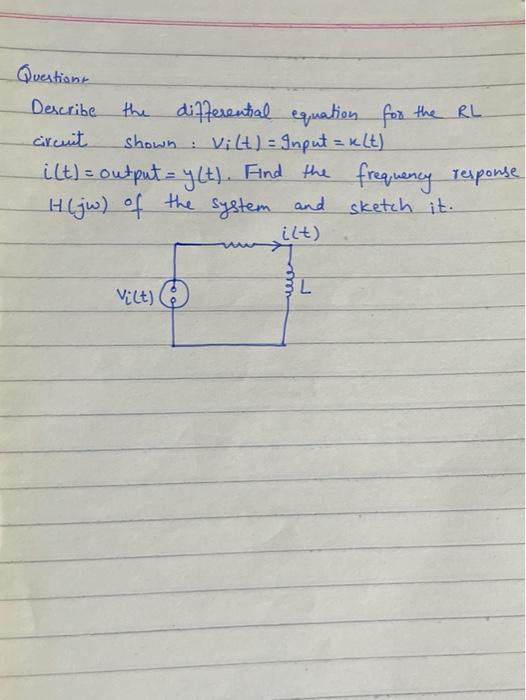 Question:-
Describe the differential equation for the RL
circuit shown : Vi(t) = Input = x(t)
i(t) = output = y(t). Find the frequency response
H(jw) of the system and sketch it.
i(t)
Vi(t)
L